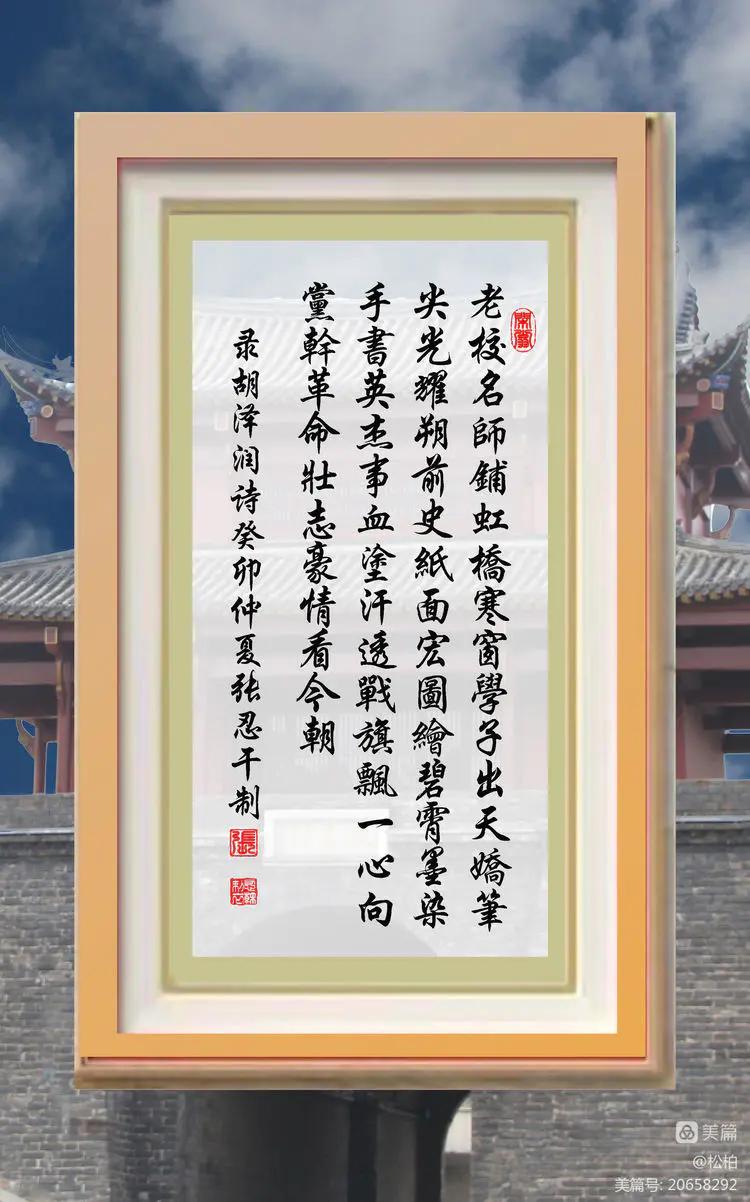 老校名師鋪虹橋寒窗學子出天嬌筆
尖光耀朔前史紙面宏圖繪碧霄墨染
手書英杰事血塗汗透戰旗飄一心向
黨幹革命壯志豪情看今朝
录胡泽润诗癸卯仲夏张忍干制
美篇
@松柏
美篇号: 20658292